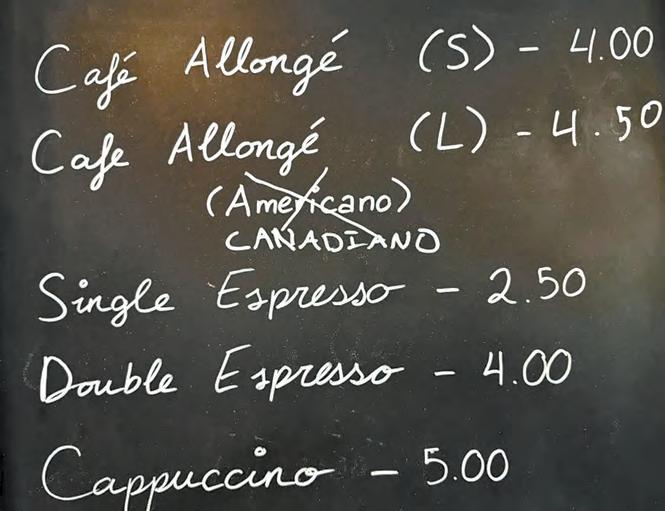 Café Allongé (S) - 4.00
Cafe Allongé (L) - 4.50
(Americano)
CANADIANO
Single Espresso - 2.50
Double Espresso - 4.00
Cappuccino - 5.00